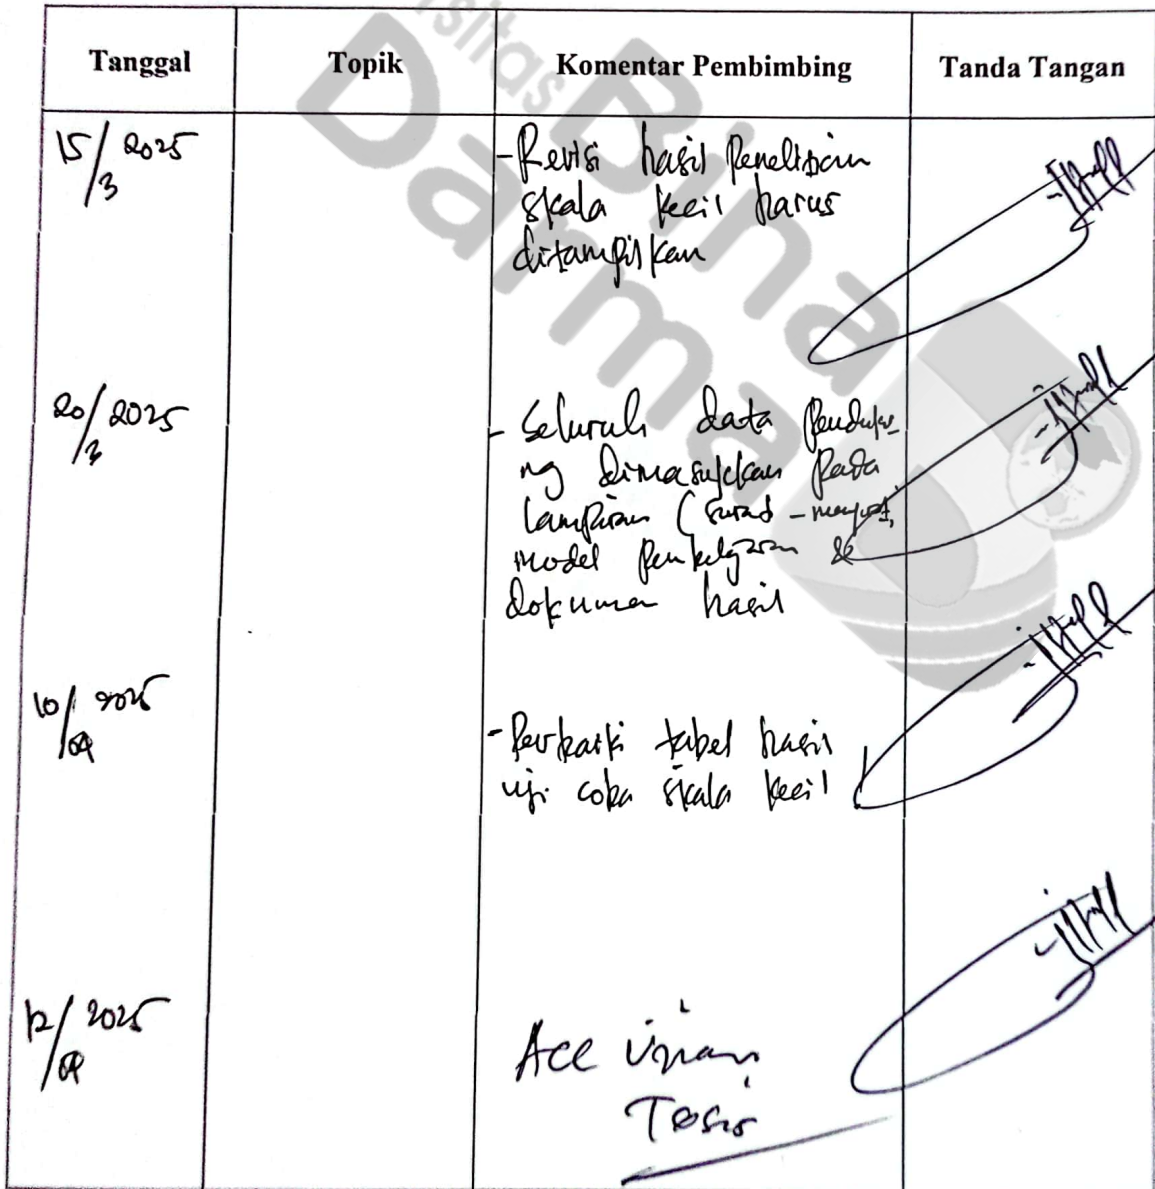 Universitas
Bina
Darma
Tanggal Topik Komentar Pembimbing Tanda Tangan
15/3 2025 - Revisi hasil Penelitian
skala kecil harus
ditampilkan
20/3 2025 - Seluruh data Penduku
ng dimasukkan pada
lampiran (surat-menyurat,
model pembelajaran &
dokumen hasil
10/04 2025 - Perbaiki tabel hasil
uji coba skala kecil
12/04 2025 Acc Ujian
Tesis